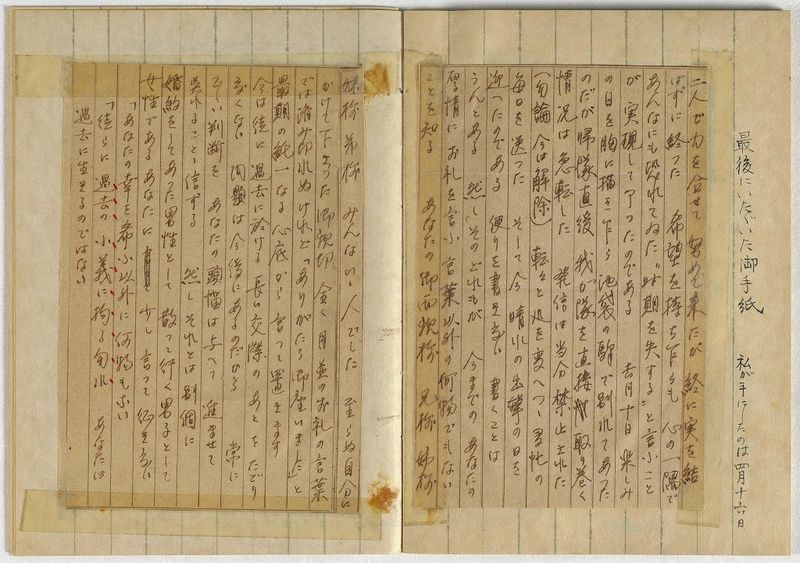 最後にいたゞいた御手紙　私が手にしたのは四月十六日
二人で力を合せて努めて来たが終に実を結
ばずに終った　希望を持ち乍らも心の一隅で
あんなにも恐れてゐた“時期を失すること”言ふこと
が実現して了ったのである　去月十日楽しみ
の日を胸に描き乍ら池袋の駅で別れてあった
のだが帰隊直後　我が隊を直接取り巻く
情況は急転した　発信は当分禁止された
（勿論今は解除）転々と処を変へつゝ多忙の
毎日を送った　そして今晴れの出撃の日を
迎ったのである　便りを書き度い　書くことは
うんとある　然しそのどれもが今までのあなたの
厚情にお礼を言ふ言葉以外の何物でもない
ことを知る　あなたの御両親様　兄様　姉様
妹様　弟様　みんないゝ人でした　至らぬ自分に
かけて下さった御親切　全く月並のお礼の言葉
では済み切れぬけれど「ありがたう御座いました」と
最期の純一なる心底から言って置きます
今は徒に過去に於ける長い交際のあとをたどり
度くない　問題は今後にあるのだから　常に
正しい判断をあなたの頭脳は与へて進ませて
呉れることゝ信ずる　然しそれとは別個に
婚約をしてあった男性として　散って行く男子として
女性であるあなたに少し言って征き度い
「あなたの幸を希ふ以外に何物もない
「徒らに過去の小義に拘る勿れ　あなたは
過去に生きるのではない